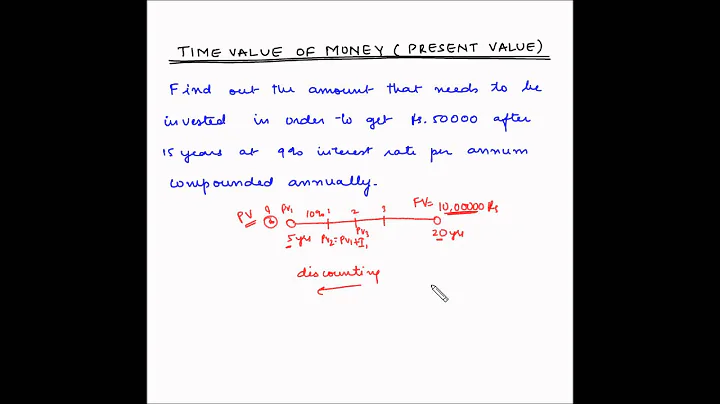 TIME VALUE OF MONEY (PRESENT VALUE)
Find out the amount that needs to be
invested in order to get Rs. 50000 after
15 years at 9% interest rate per annum
compounded annually.
PV 0 PV₁ 10% 1 2 3 FV = 10,00000 Rs
5 yrs PV₂ = PV₁ + I₁ PV₃ 20 yrs
discounting